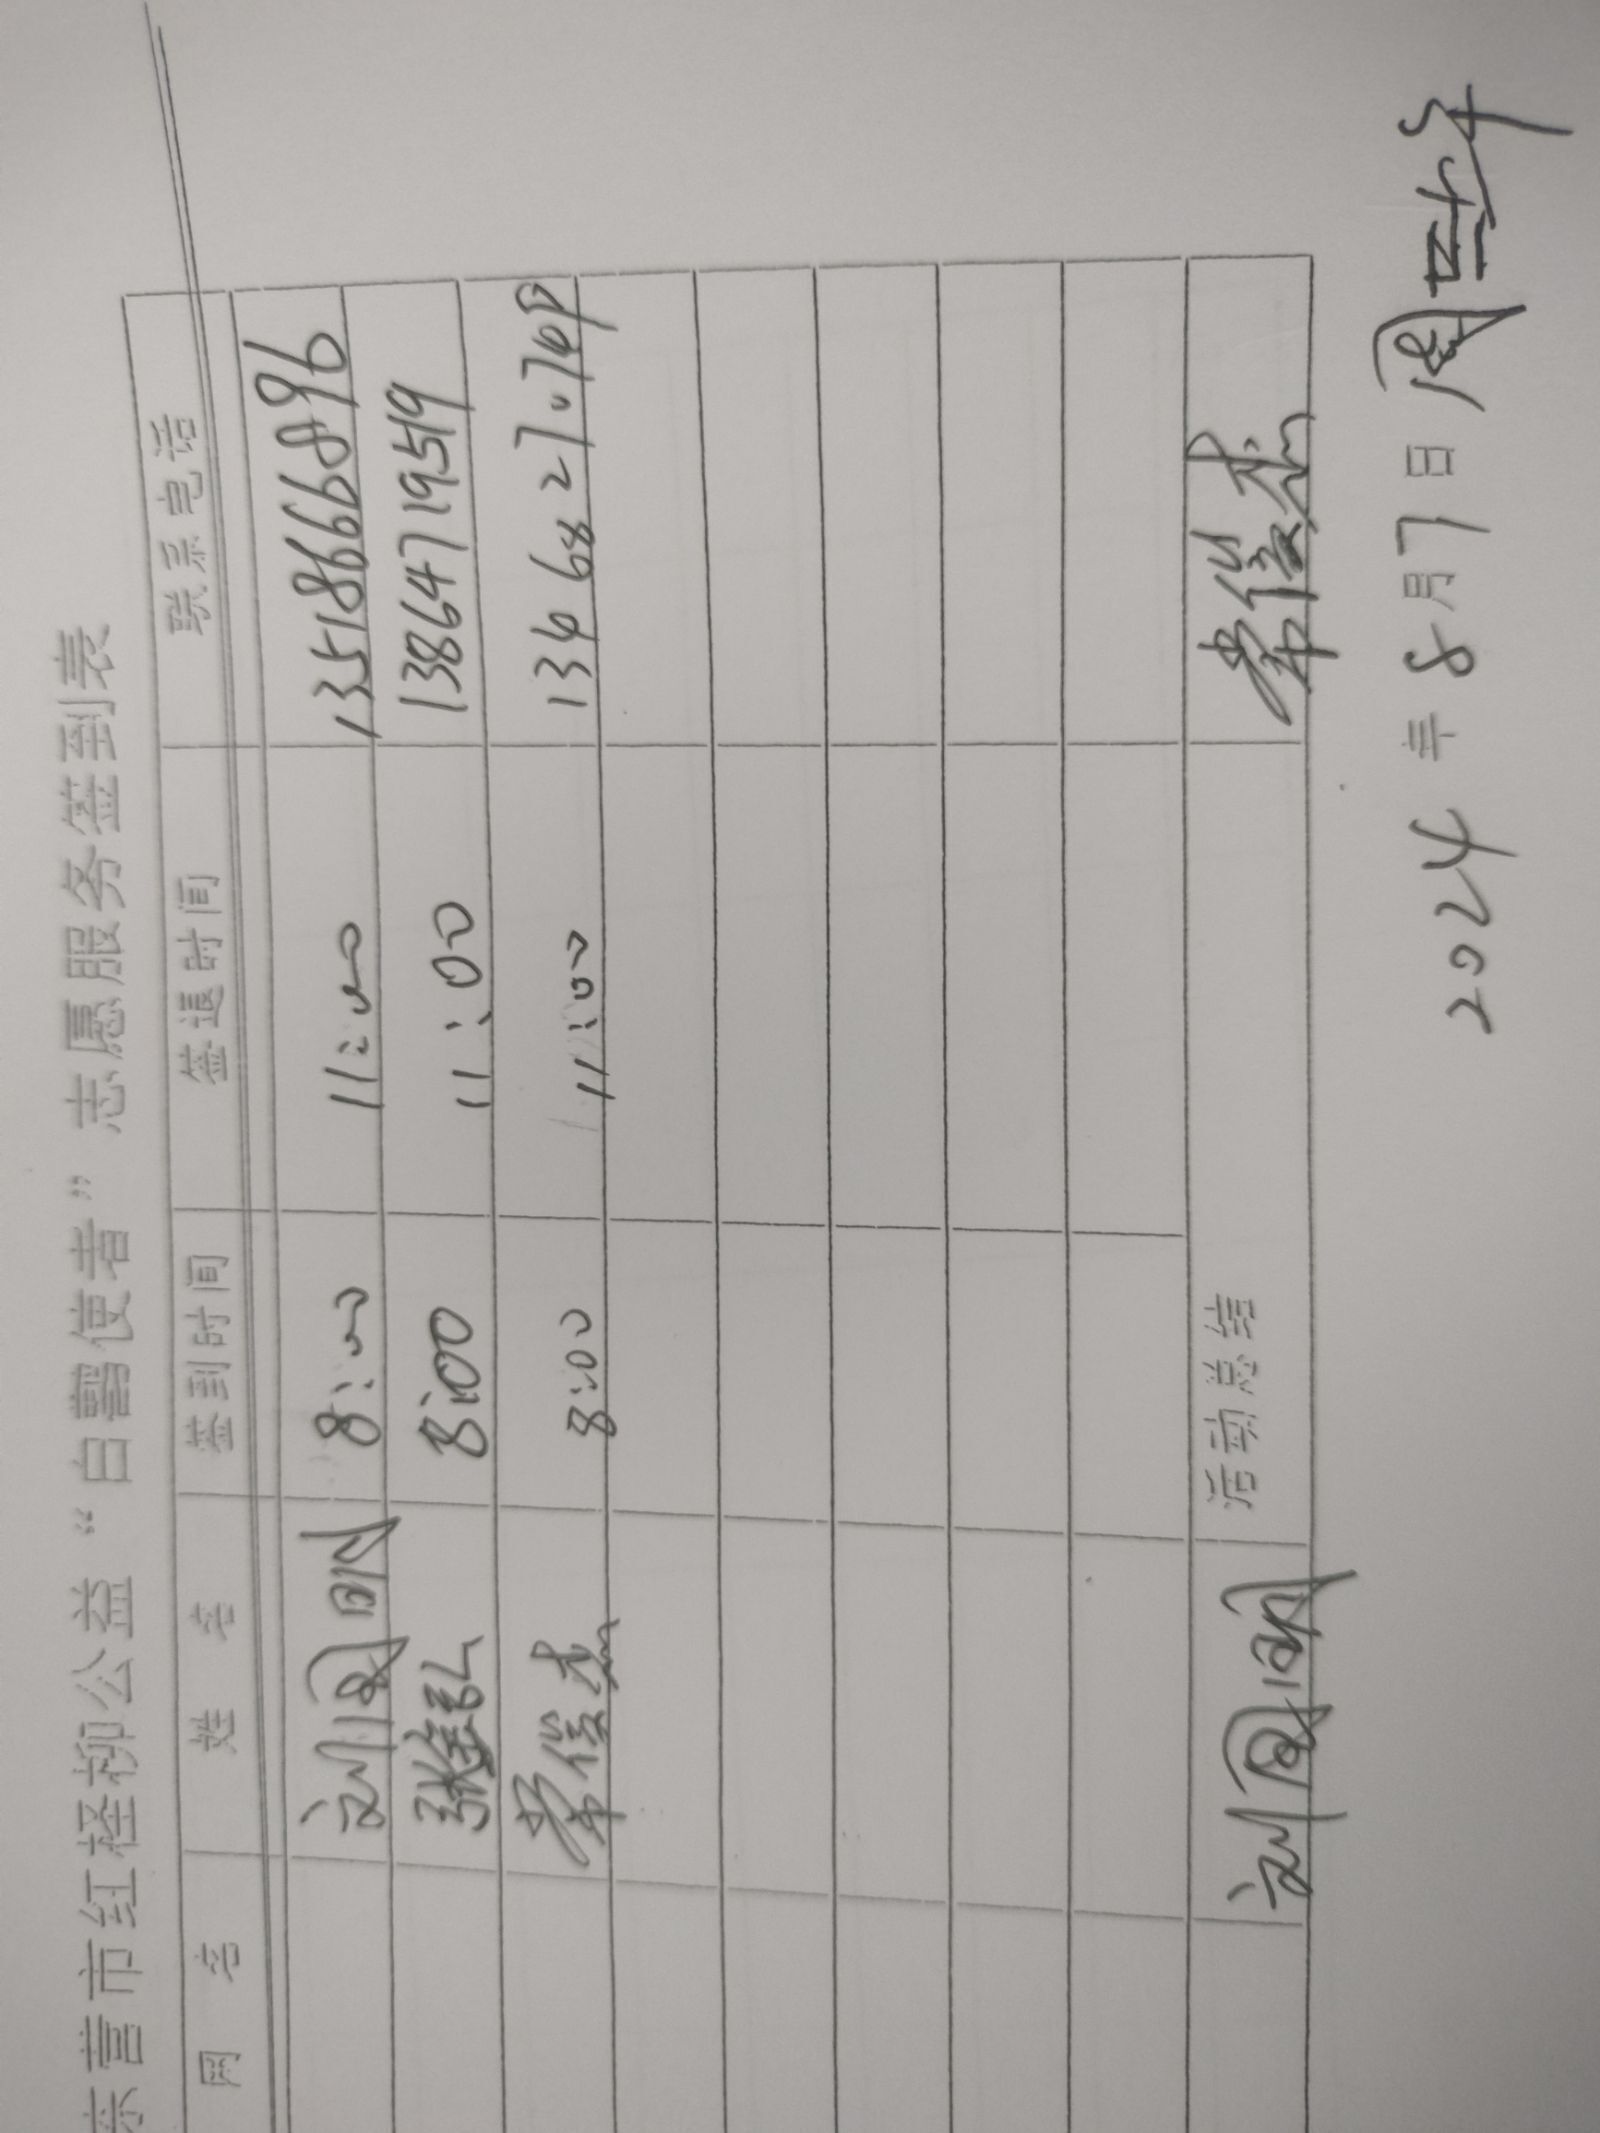 东营市红柽柳公益“白鹭使者”志愿服务签到表
网名 姓名 签到时间 签退时间 联系电话
刘国明 8:00 11:00 13518666896
张 8:00 11:00 13864719519
常俊杰 8:00 11:00
刘国明 活动总结 常俊杰
2024年8月7日 周三